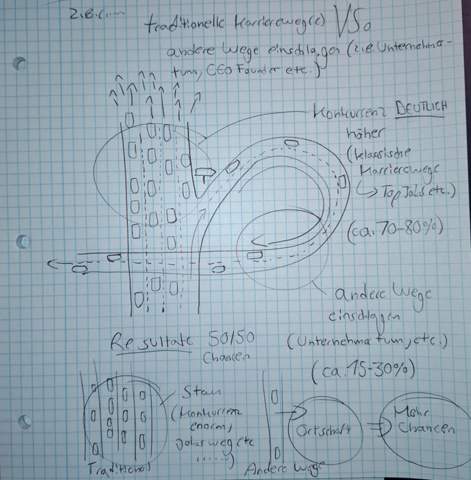 z.B.
traditionelle Karrierweg(e) VS.
andere Wege einschlagen (z.B Unternehm-
tum, CEO Founder etc.)
Konkurrenz DEUTLICH
höher
(klassische
Karrierewege
↳ Top Jobs etc.)
(ca. 70-80%)
andere Wege
einschlagen
(Unternehmatum, etc.)
(ca. 15-30%)
Resultate 50/50
Chancen
Stau
(Konkurrenz
enorm,
Jobs weg etc
......)
Traditionell
Andere Wege
Ortschaft
Mehr
Chancen